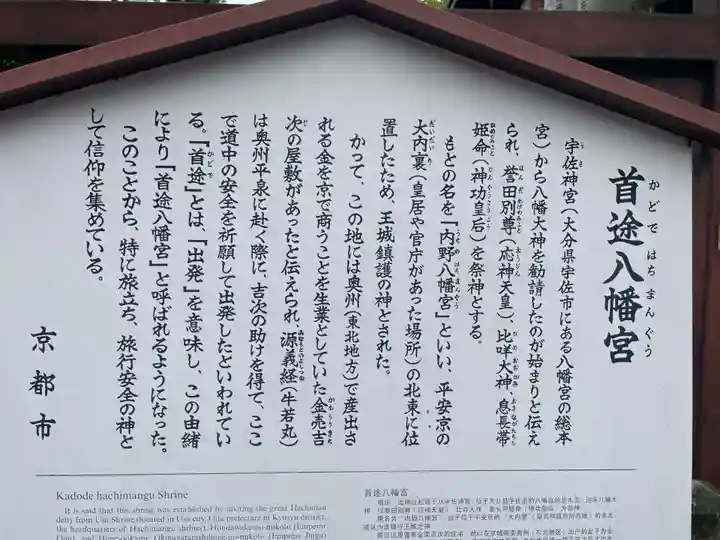 首途八幡宮
かどではちまんぐう
宇佐神宮（大分県宇佐市にある八幡宮の総本
宮）から八幡大神を勧請したのが始まりと伝え
られ、誉田別尊（応神天皇）、比咩大神、息長帯
姫命（神功皇后）を祭神とする。
もとの名を『内野八幡宮』といい、平安京の
大内裏（皇居や官庁があった場所）の北東に位
置したため、王城鎮護の神とされた。
かつて、この地には奥州（東北地方）で産出さ
れる金を京で商うことを生業としていた金売吉
次の屋敷があったと伝えられ、源義経（牛若丸）
は奥州平泉に赴く際に、吉次の助けを得て、ここ
で道中の安全を祈願して出発したといわれてい
る。『首途』とは、『出発』を意味し、この由緒
により『首途八幡宮』と呼ばれるようになった。
このことから、特に旅立ち、旅行安全の神と
して信仰を集めている。
京都市
Kadode hachimangu Shrine
It is said that this shrine was established by inviting the great Hachiman
deity from Usa Shrine (housed in Usa city, Oita prefecture in Kyusyu district,
the headquarters of Hachimangu shrines). Hondawake-no-mikoto (Emperor
首途八幡宮